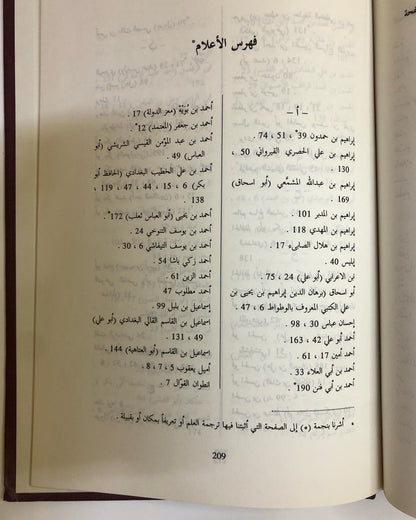 فهرس الأعلام*
– أ –
إبراهيم بن حمدون 39* ، 51 ، 74 .
إبراهيم بن علي الحصري القيرواني 50 ،
130 .
إبراهيم بن عبدالله المشمعي (أبو اسحاق)
169 .
إبراهيم بن المدبر 101 .
إبراهيم بن المهدي 118 .
إبراهيم بن هلال الصابىء 17 .
إبليس 40 .
ابن الاعرابي (أبو علي) 24 ، 75 .
أبو اسحاق (برهان الدين إبراهيم بن يحيى بن
علي الكتبي المعروف بالوطواط 6 ، 47 .
إحسان عباس 30 ، 98 .
أحمد أبو علي 42 ، 163 .
أحمد أمين 17 ، 61 .
أحمد بن أبي العلاء 33 .
أحمد بن أبي فنن 190* .
أحمد بن بُوَيْه (معز الدولة) 17 .
أحمد بن جعفر (المعتمد) 12* .
أحمد بن عبد المؤمن القيسي الشريشي (أبو
العباس) 49 .
أحمد بن علي الخطيب البغدادي (الحافظ أبو
بكر) 6 ، 15 ، 44 ، 47 ، 119 ،
138 .
أحمد بن يحيى (أبو العباس ثعلب) 172* .
أحمد بن يوسف التنوخي 24 .
أحمد بن يوسف التيفاشي 6 ، 30 .
أحمد زكي باشا 54 .
أحمد الزين 61 .
أحمد مطلوب 47
إسماعيل بن بلبل 99 .
إسماعيل بن القاسم القالي البغدادي (أبو علي)
49 ، 131 .
إسماعيل بن القاسم (أبو العتاهية) 144 .
أميل يعقوب 5 ، 7 ، 8 .
انطوان القوّال 7 .
* أشرنا بنجمة (*) إلى الصفحة التي أثبتنا فيها ترجمة العلم أو تعريفاً بمكان أو بقبيلة .
209